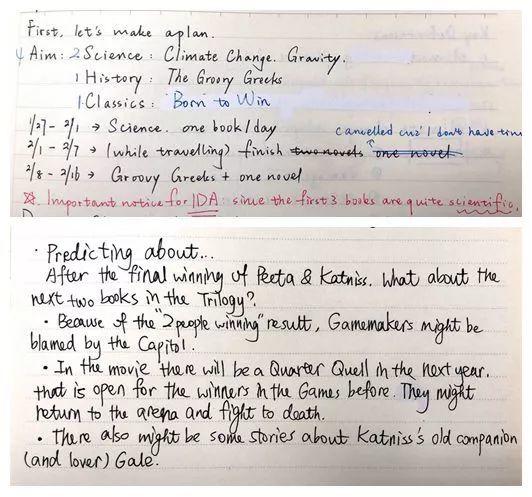 First, let's make a plan.
4 Aim: 2 Science: Climate Change. Gravity.
1 History: The Groovy Greeks
1 Classics: Born to Win
1/27 - 2/1 → Science. one book / day
cancelled cuz I don't have time
2/1 - 2/7 → (while travelling) finish two novels one novel
2/8 - 2/16 → Groovy Greeks + one novel
Important notice for IDA: since the first 3 books are quite scientific,
· Predicting about...
After the final winning of Peeta & Katniss. What about the
next two books in the Trilogy?
· Because of the "2 people winning" result, Gamemakers might be
blamed by the Capitol.
· In the movie there will be a Quarter Quell in the next year.
that is open for the winners in the Games before. They might
return to the arena and fight to death.
· There also might be some stories about Katniss's old companion
(and lover) Gale.